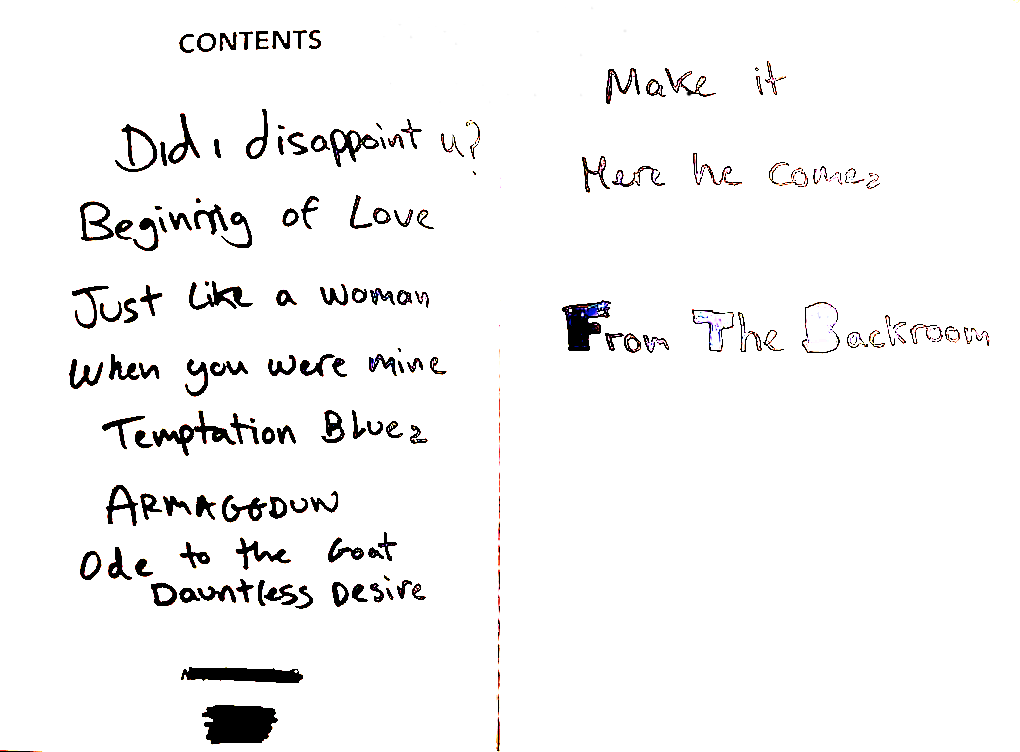 CONTENTS
Did I disappoint u?
Begining of Love
Just Like a woman
When you were mine
Temptation Blues
ARMAGEDDON
Ode to the Goat
Dauntless Desire
Make it
Here he comes
From The Backroom